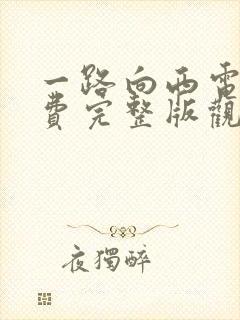 一路向西電
費完整版觀
夜獨醉